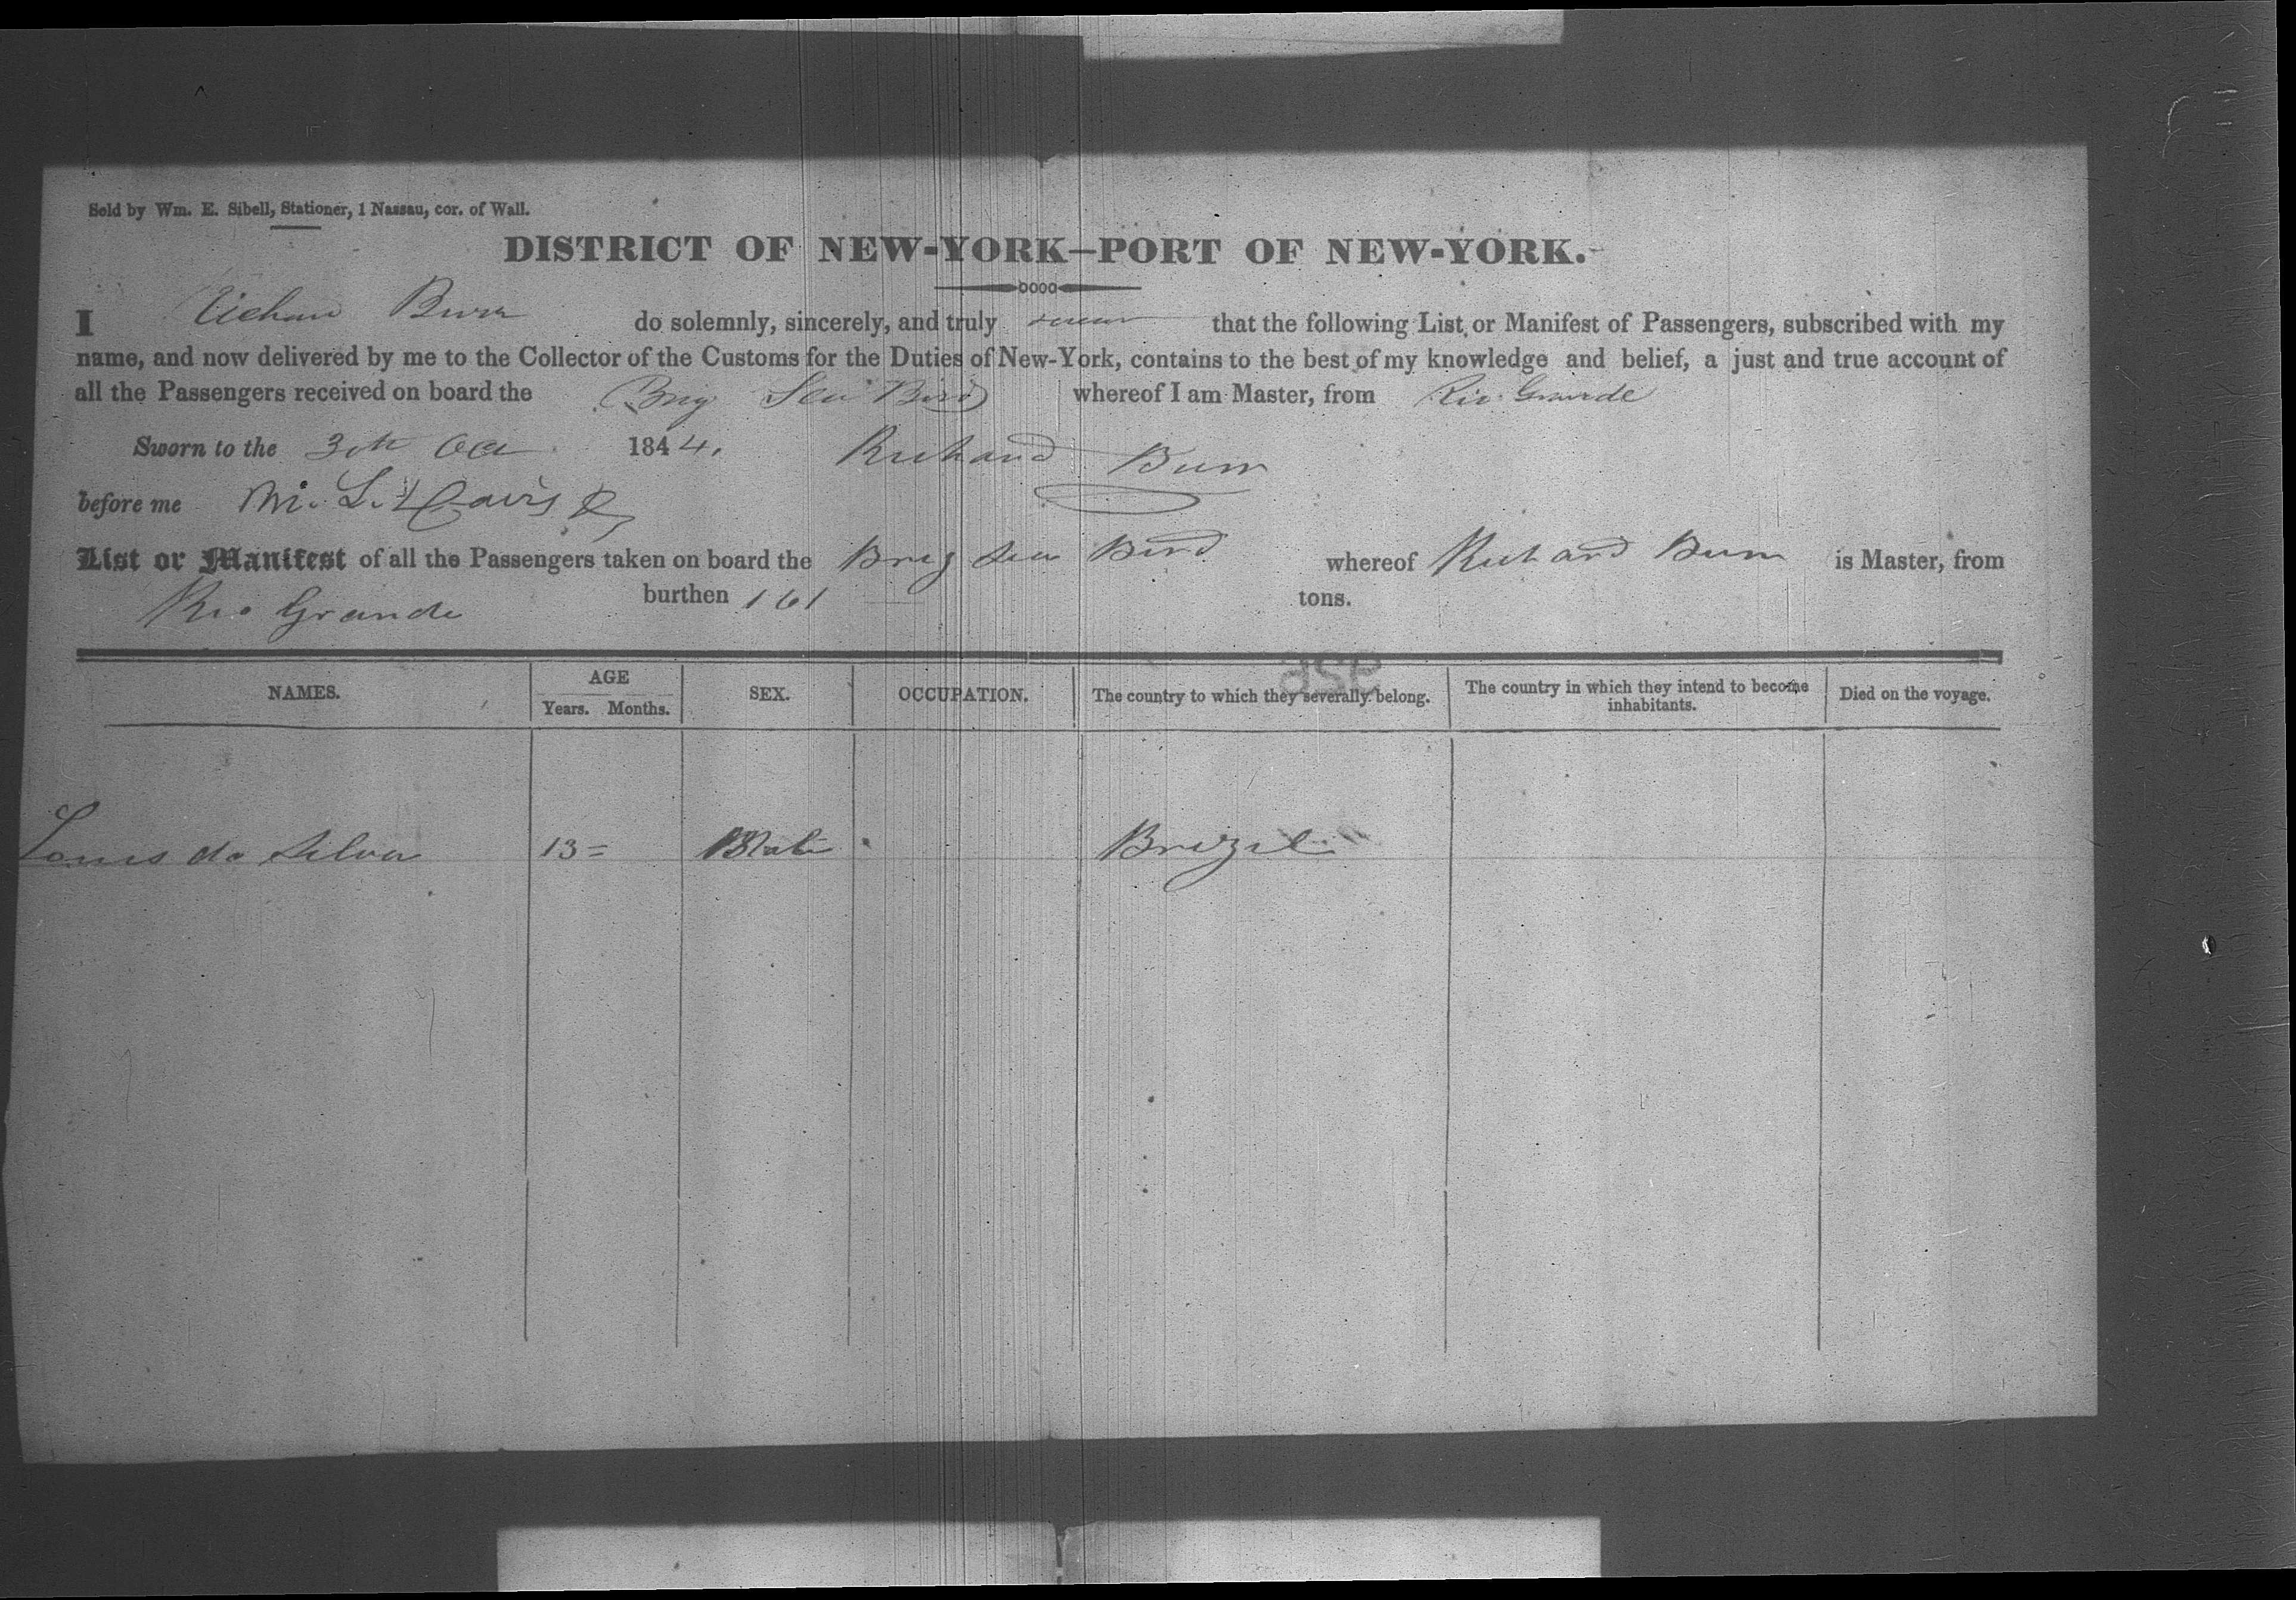 Sold by Wm. E. Sibell, Stationer, 1 Nassau, cor. of Wall.
DISTRICT OF NEW-YORK—PORT OF NEW-YORK.
I Richard Burr do solemnly, sincerely, and truly swear that the following List or Manifest of Passengers, subscribed with my
name, and now delivered by me to the Collector of the Customs for the Duties of New-York, contains to the best of my knowledge and belief, a just and true account of
all the Passengers received on board the Brig Sea Bird whereof I am Master, from Rio Grande
Sworn to the 30th Oct 1844. Richard Burr
before me M. L. Davis
List or Manifest of all the Passengers taken on board the Brig Sea Bird whereof Richard Burr is Master, from
Rio Grande burthen 161 tons.
NAMES. AGE Years. Months. SEX. OCCUPATION. The country to which they severally belong. The country in which they intend to become inhabitants. Died on the voyage.
Louis da Silva 13 Male Brizil